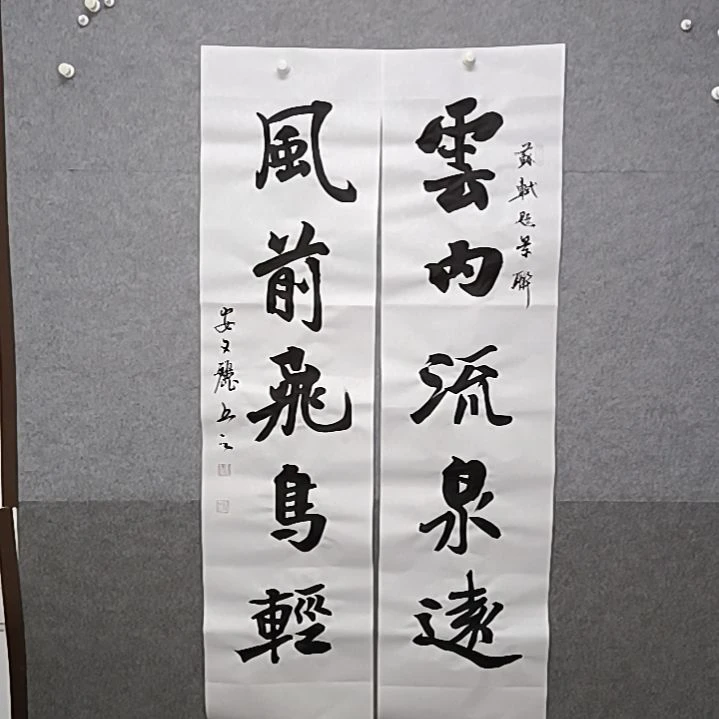 蘇軾題景聯
雲內流泉遠
風前飛鳥輕
安文麗書